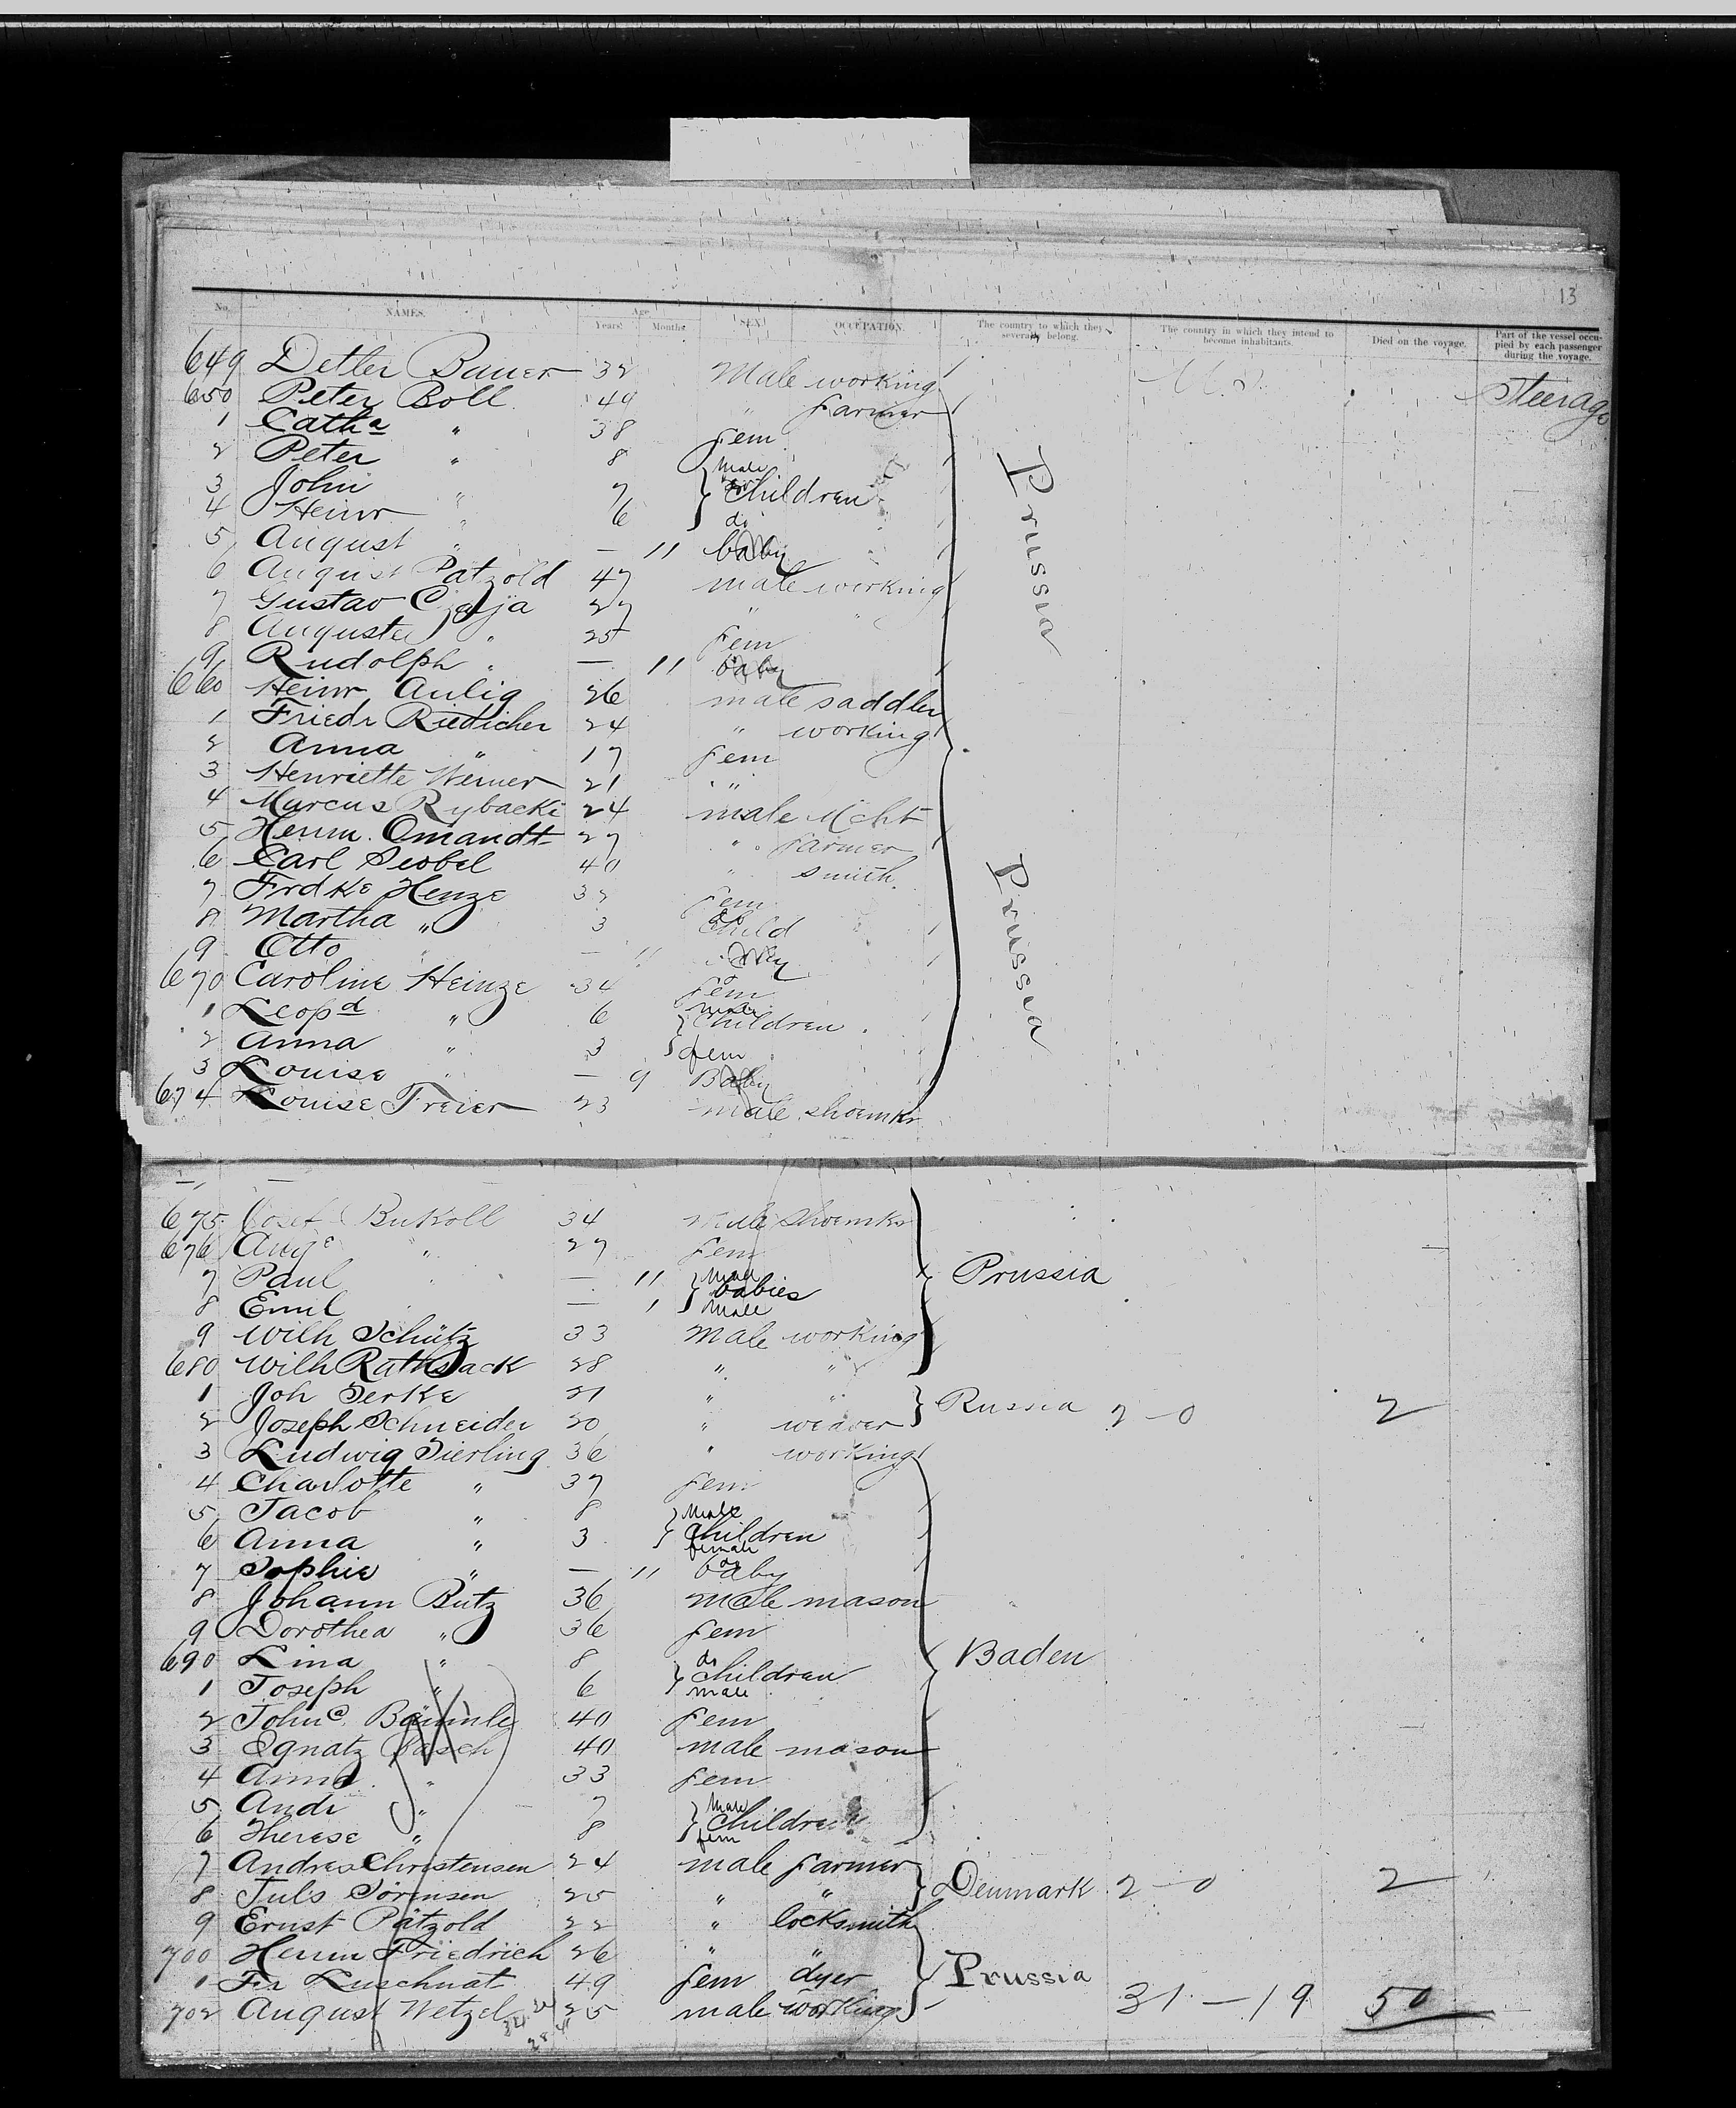 13
No. NAMES. Age Years Months SEX OCCUPATION. The country to which they severally belong. The country in which they intend to become inhabitants. Died on the voyage. Part of the vessel occupied by each passenger during the voyage.
649 Detler Bauer 32 Male working U.S. Steerage
650 Peter Boll 44 " farmer
1 Catha " 38 fem
2 Peter " 8 Male
3 John " 7 Children
4 Heinr " 6 do
5 August " — 11 baby
6 August Patzold 47 male working
7 Gustav 27 " "
8 Auguste " 25 fem
9 Rudolph " — 11 baby
Prussia
660 Heinr Aulig 26 male saddler
1 Friedr Riedlicher 24 " working
2 Anna " 17 fem
3 Henriette Werner 21 "
4 Marcus Rybacki 24 male Mcht
5 Herm. Omandt 27 " farmer
6 Carl Seobel 40 " smith
7 Frdke Henze 32 fem
8 Martha " 3 do child
9 Otto " — 11
670 Caroline Heinze 34 fem
1 Leopd " 6 male children
2 Anna " 3 fem
3 Louise " — 9 Baby
674 Louise Freier 23 male shoemkr
Prussia
675 Josef Bukoll 34 male shoemkr
676 Auge " 27 fem
7 Paul — 11 male babies Prussia
8 Emil — 1 male
9 Wilh Schütz 33 male working
680 Wilh Rathsack 28 " "
1 Joh Serke 21 " " Russia 2 — 0 2
2 Joseph Schneider 20 " weaver
3 Ludwig Sierling 36 " working
4 Charlotte " 37 fem
5 Jacob " 8 Male children
6 Anna " 3 female
7 Sophie " — 11 do baby
8 Johann Butz 36 male mason
9 Dorothea " 36 fem
690 Lina " 8 do children Baden
1 Joseph " 6 male
2 Johna Bäumle 40 fem
3 Ignatz Basch 40 male mason
4 Anna " 33 fem
5 Andr " 7 Male children
6 Therese " 8 fem
7 Andres Christensen 24 male farmer Denmark 2 — 0 2
8 Juls Sörensen 25 " "
9 Ernst Pätzold 22 " locksmith
700 Herm Friedrich 26 " "
1 Fr Luschnat 49 fem dyer Prussia
702 August Wetzel 25 male working 31 — 19 50